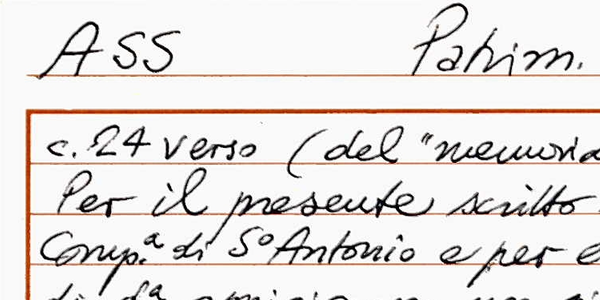 ASS Patrim.
c. 24 verso (del "memoria
Per il presente scritto
Comp.ª di Sº Antonio e per e
di d.ª